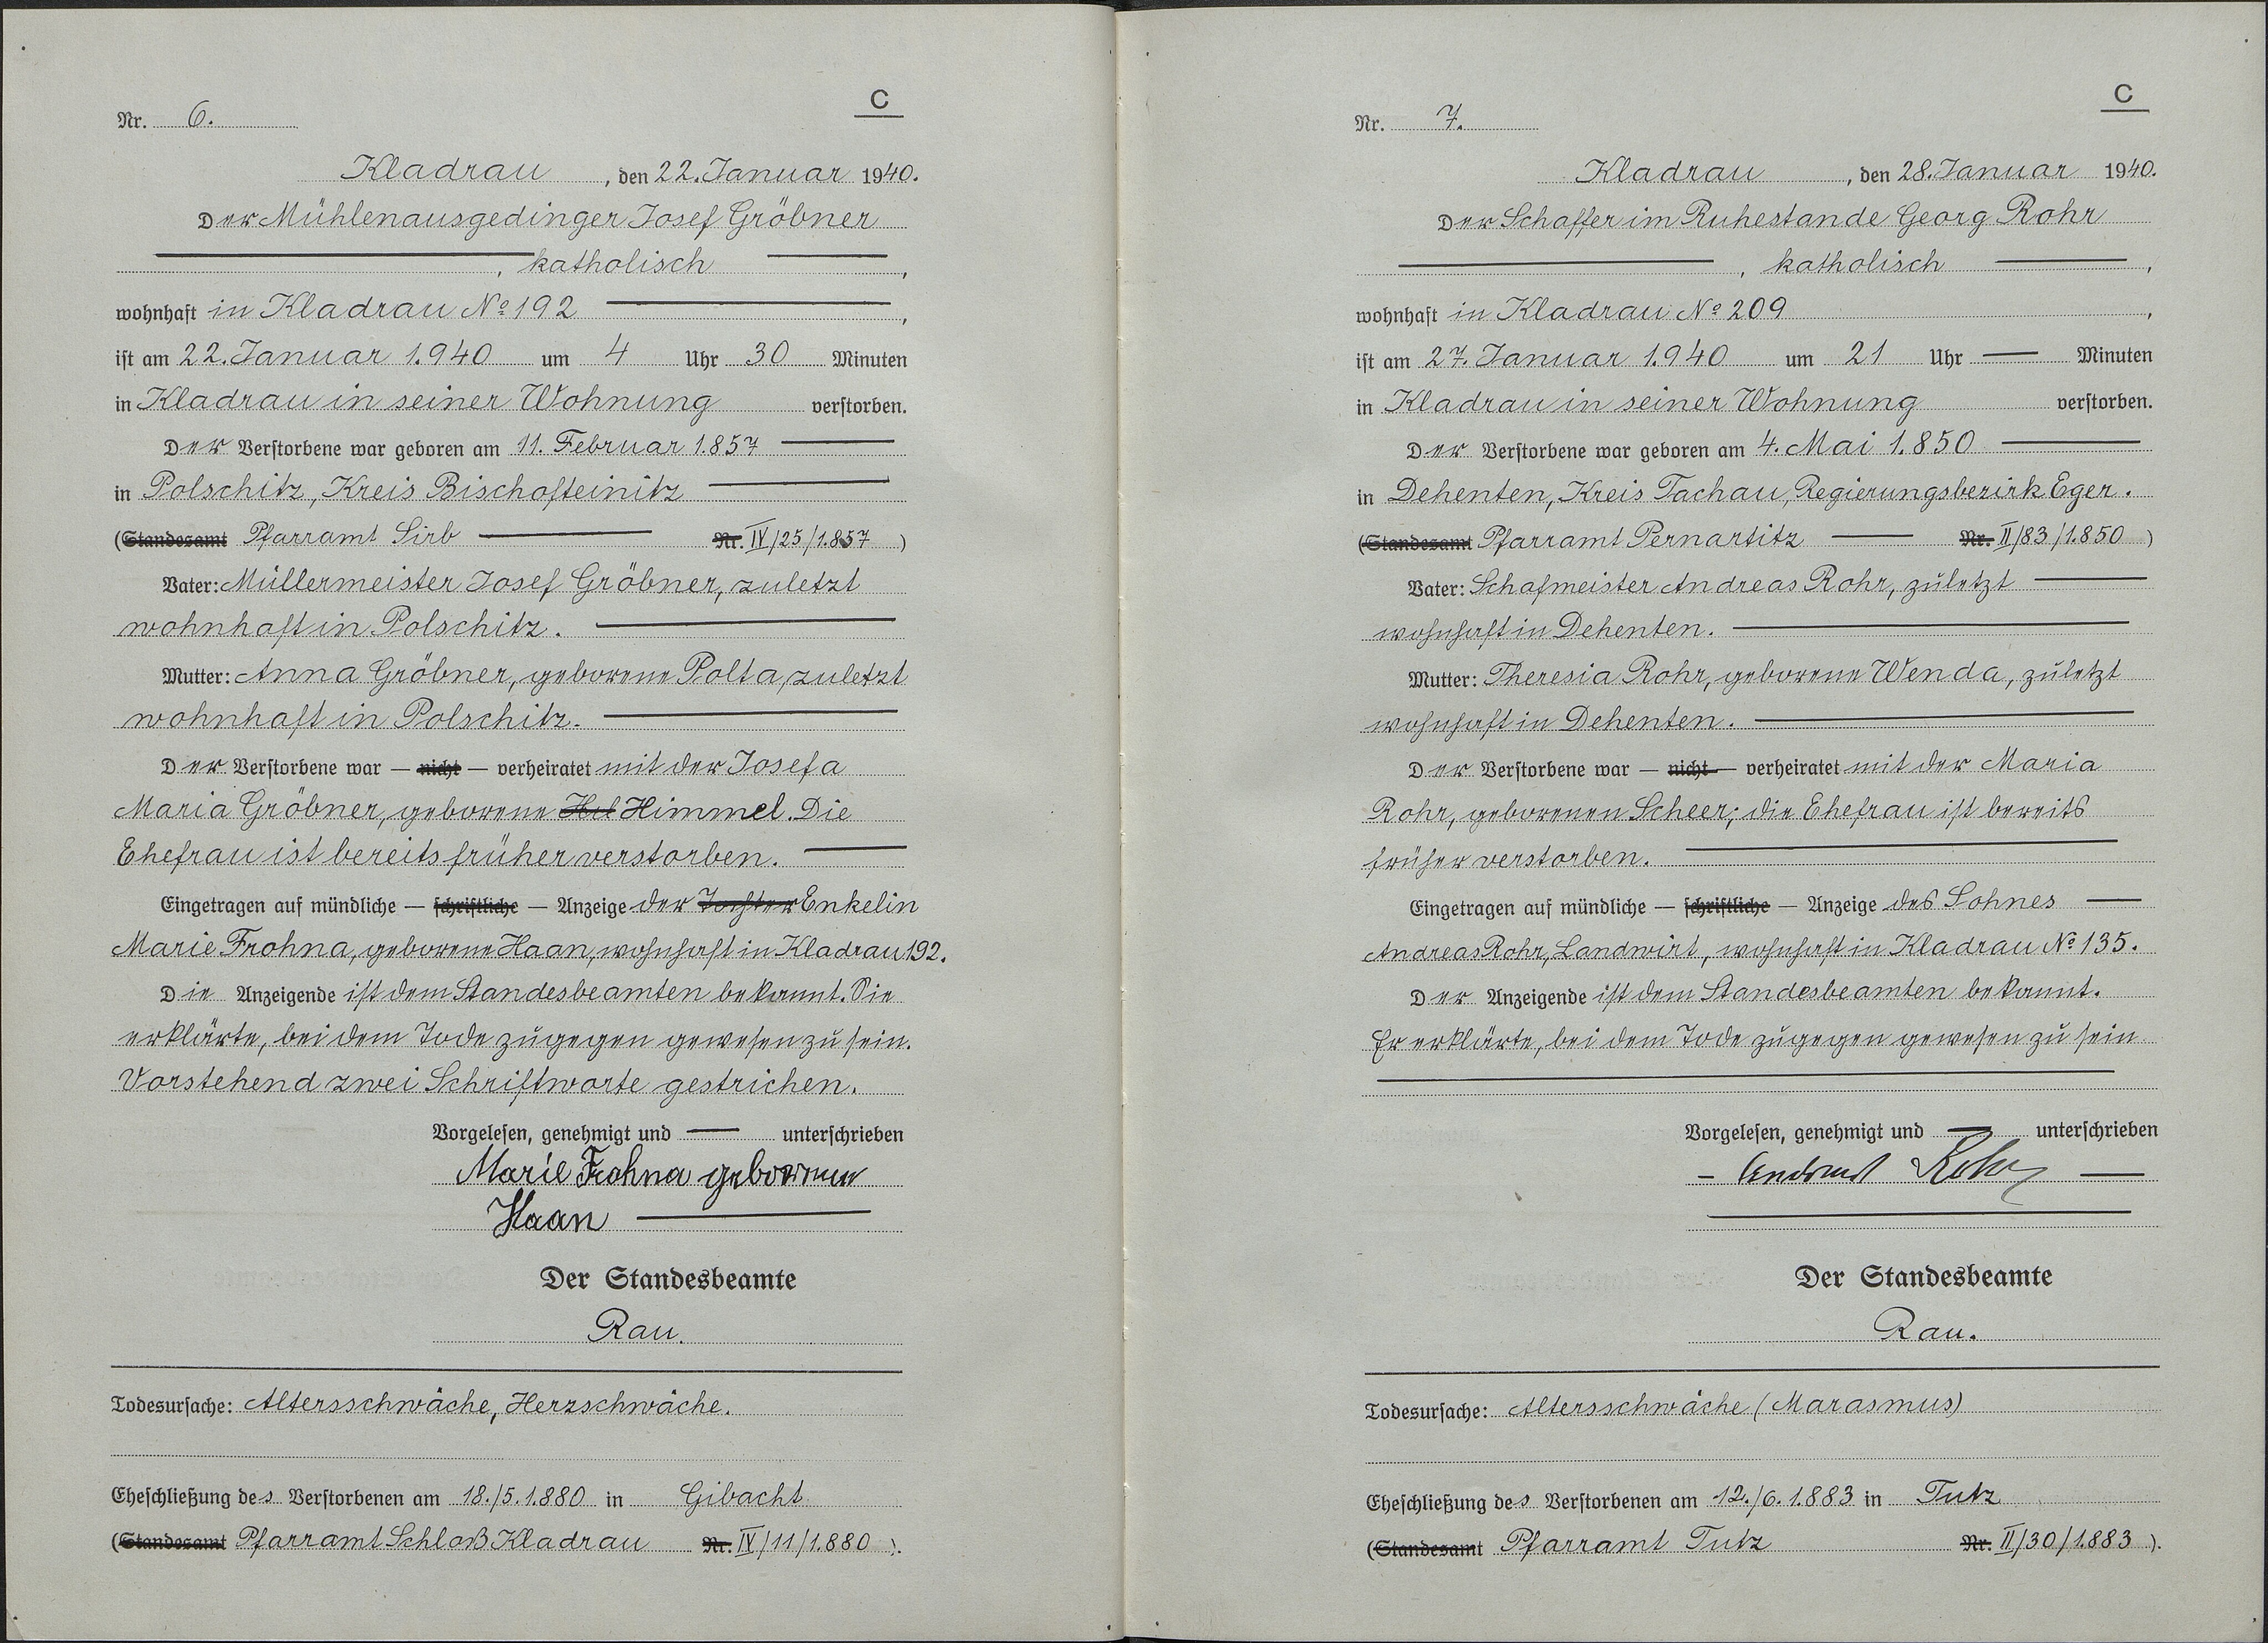 C
Nr. 6.
Kladrau, den 22. Januar 1940.
Der Mühlenausgedinger Josef Gröbner
, katholisch ,
wohnhaft in Kladrau No 192 ,
ist am 22. Januar 1.940 um 4 Uhr 30 Minuten
in Kladrau in seiner Wohnung verstorben.
Der Verstorbene war geboren am 11. Februar 1.857
in Polschitz, Kreis Bischofteinitz
(Standesamt Pfarramt Sirb Nr. IV/25/1.857)
Vater: Müllermeister Josef Gröbner, zuletzt
wohnhaft in Polschitz.
Mutter: Anna Gröbner, geborene Polta, zuletzt
wohnhaft in Polschitz.
Der Verstorbene war — nicht — verheiratet mit der Josefa
Maria Gröbner, geborene Himmel. Die
Ehefrau ist bereits früher verstorben.
Eingetragen auf mündliche — schriftliche — Anzeige der Tochter Enkelin
Marie Frohna, geborene Haan, wohnhaft in Kladrau 192.
Die Anzeigende ist dem Standesbeamten bekannt. Sie
erklärte, bei dem Tode zugegen gewesen zu sein.
Vorstehend zwei Schriftworte gestrichen.
Vorgelesen, genehmigt und — unterschrieben
Marie Frohna geborene
Haan
Der Standesbeamte
Rau.
Todesursache: Altersschwäche, Herzschwäche.
Eheschließung des Verstorbenen am 18./5.1.880 in Gibacht
(Standesamt Pfarramt Schloß Kladrau Nr. IV/11/1.880).
C
Nr. 7.
Kladrau, den 28. Januar 1940.
Der Schaffer im Ruhestande Georg Rohr
, katholisch ,
wohnhaft in Kladrau No 209 ,
ist am 27. Januar 1.940 um 21 Uhr — Minuten
in Kladrau in seiner Wohnung verstorben.
Der Verstorbene war geboren am 4. Mai 1.850
in Dehenten, Kreis Tachau, Regierungsbezirk Eger.
(Standesamt Pfarramt Pernartitz Nr. II/83/1.850)
Vater: Schafmeister Andreas Rohr, zuletzt
wohnhaft in Dehenten.
Mutter: Theresia Rohr, geborene Wenda, zuletzt
wohnhaft in Dehenten.
Der Verstorbene war — nicht — verheiratet mit der Maria
Rohr, geborenen Scheer; die Ehefrau ist bereits
früher verstorben.
Eingetragen auf mündliche — schriftliche — Anzeige des Sohnes
Andreas Rohr, Landwirt, wohnhaft in Kladrau No 135.
Der Anzeigende ist dem Standesbeamten bekannt.
Er erklärte, bei dem Tode zugegen gewesen zu sein
Vorgelesen, genehmigt und — unterschrieben
– Andreas Rohr —
Der Standesbeamte
Rau.
Todesursache: Altersschwäche (Marasmus)
Eheschließung des Verstorbenen am 12./6.1.883 in Tutz
(Standesamt Pfarramt Tutz Nr. II/30/1.883).